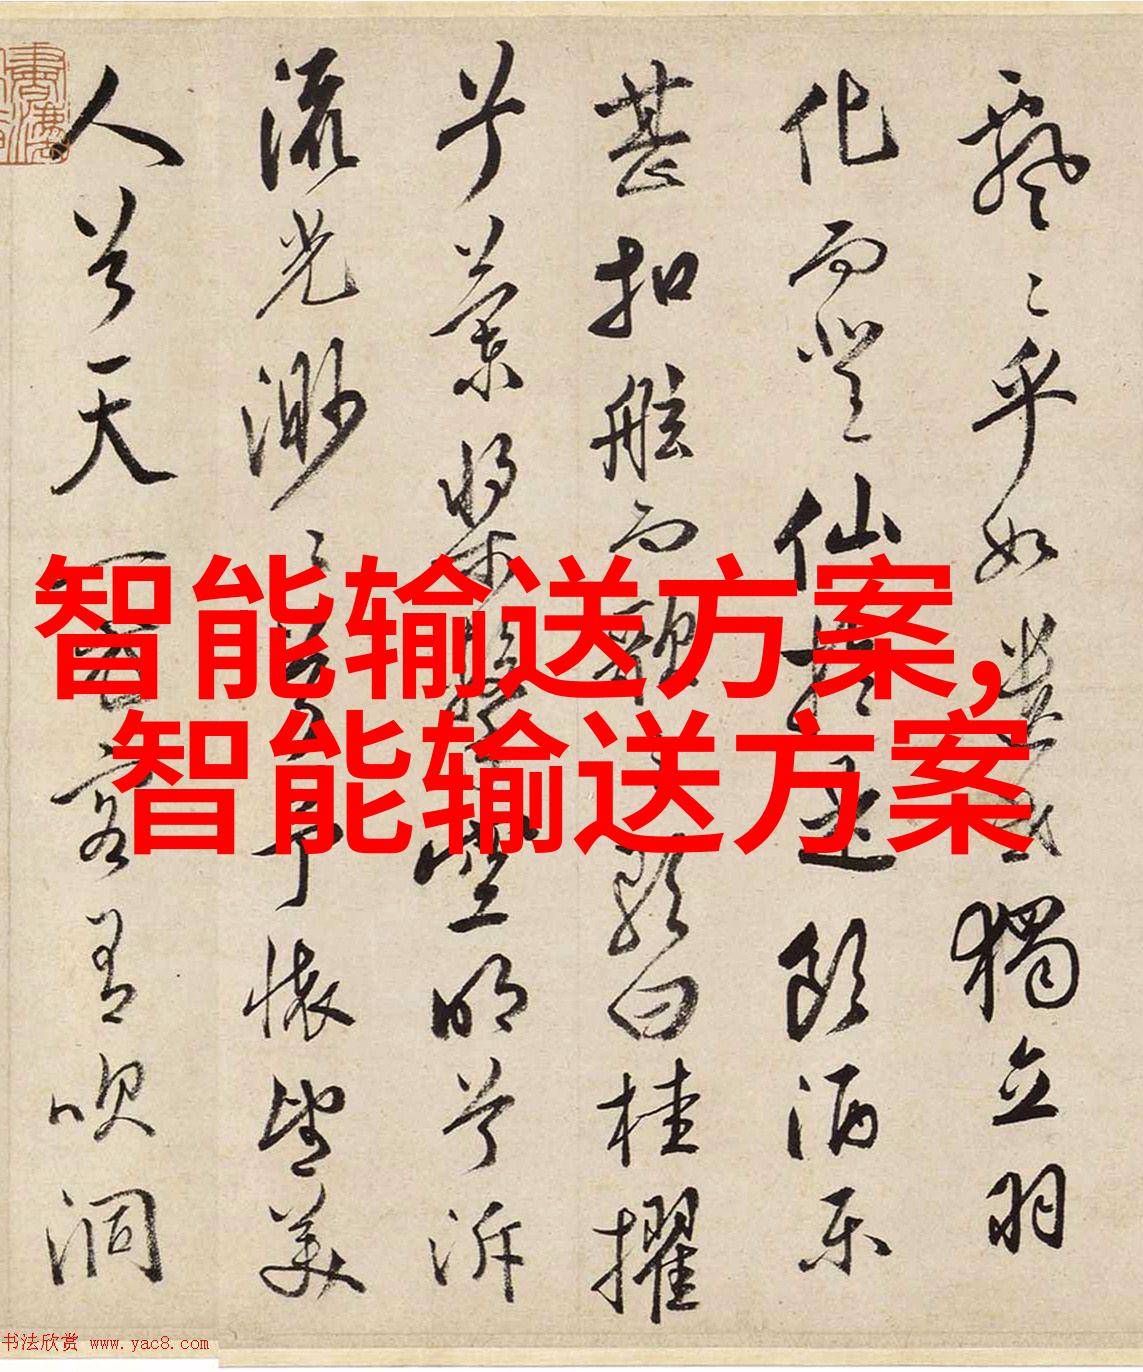 飄〻乎如遺世獨立羽
化而登仙於是飲酒樂
甚扣舷而歌之歌曰桂擢
兮蘭槳擊空明兮泝
流光渺〻兮予懷望美
人兮天一方客有吹洞
智能输送方案,
智能输送方案
书法欣赏 www.yac8.com